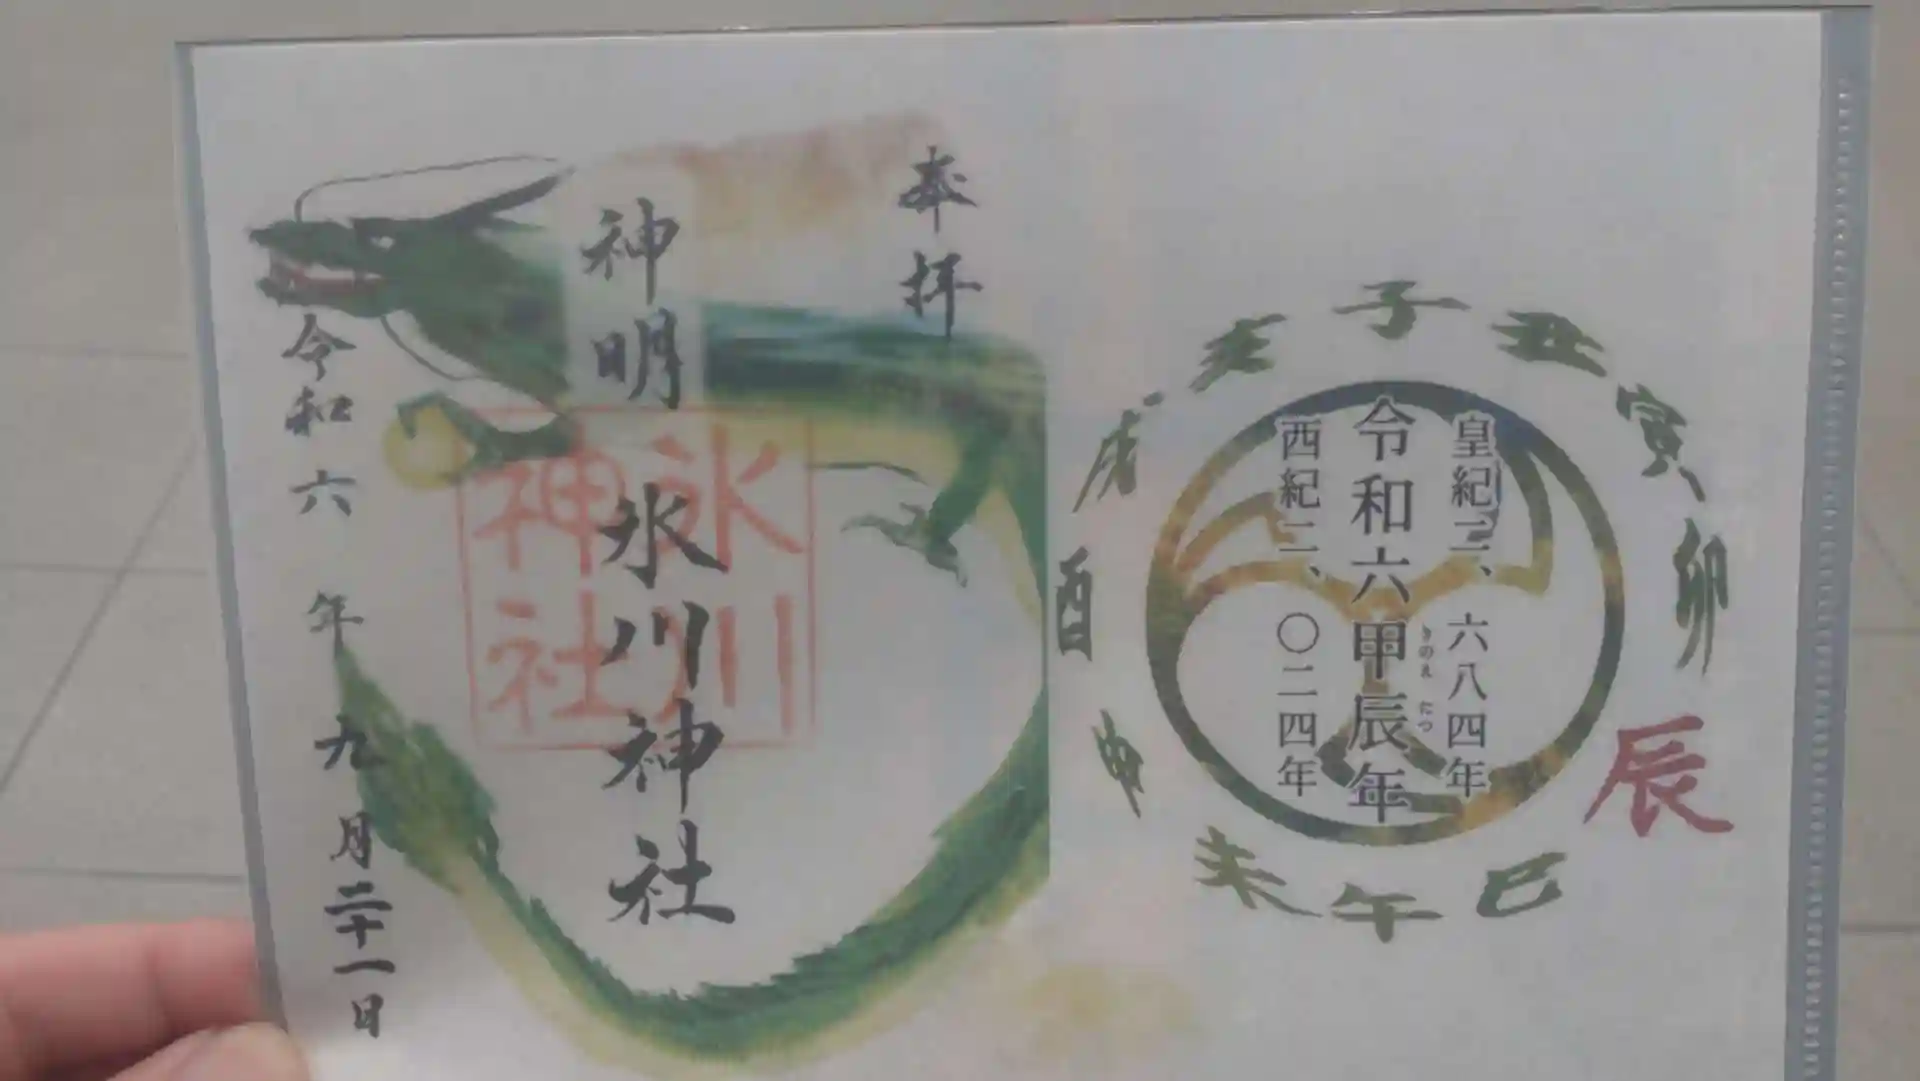 奉拝
神明
氷川神社
氷川
神社
令和六年九月二十一日
子
丑
寅
卯
辰
巳
午
未
申
酉
戌
亥
皇紀二、六八四年
令和六甲辰年
きのえ たつ
西紀二、〇二四年